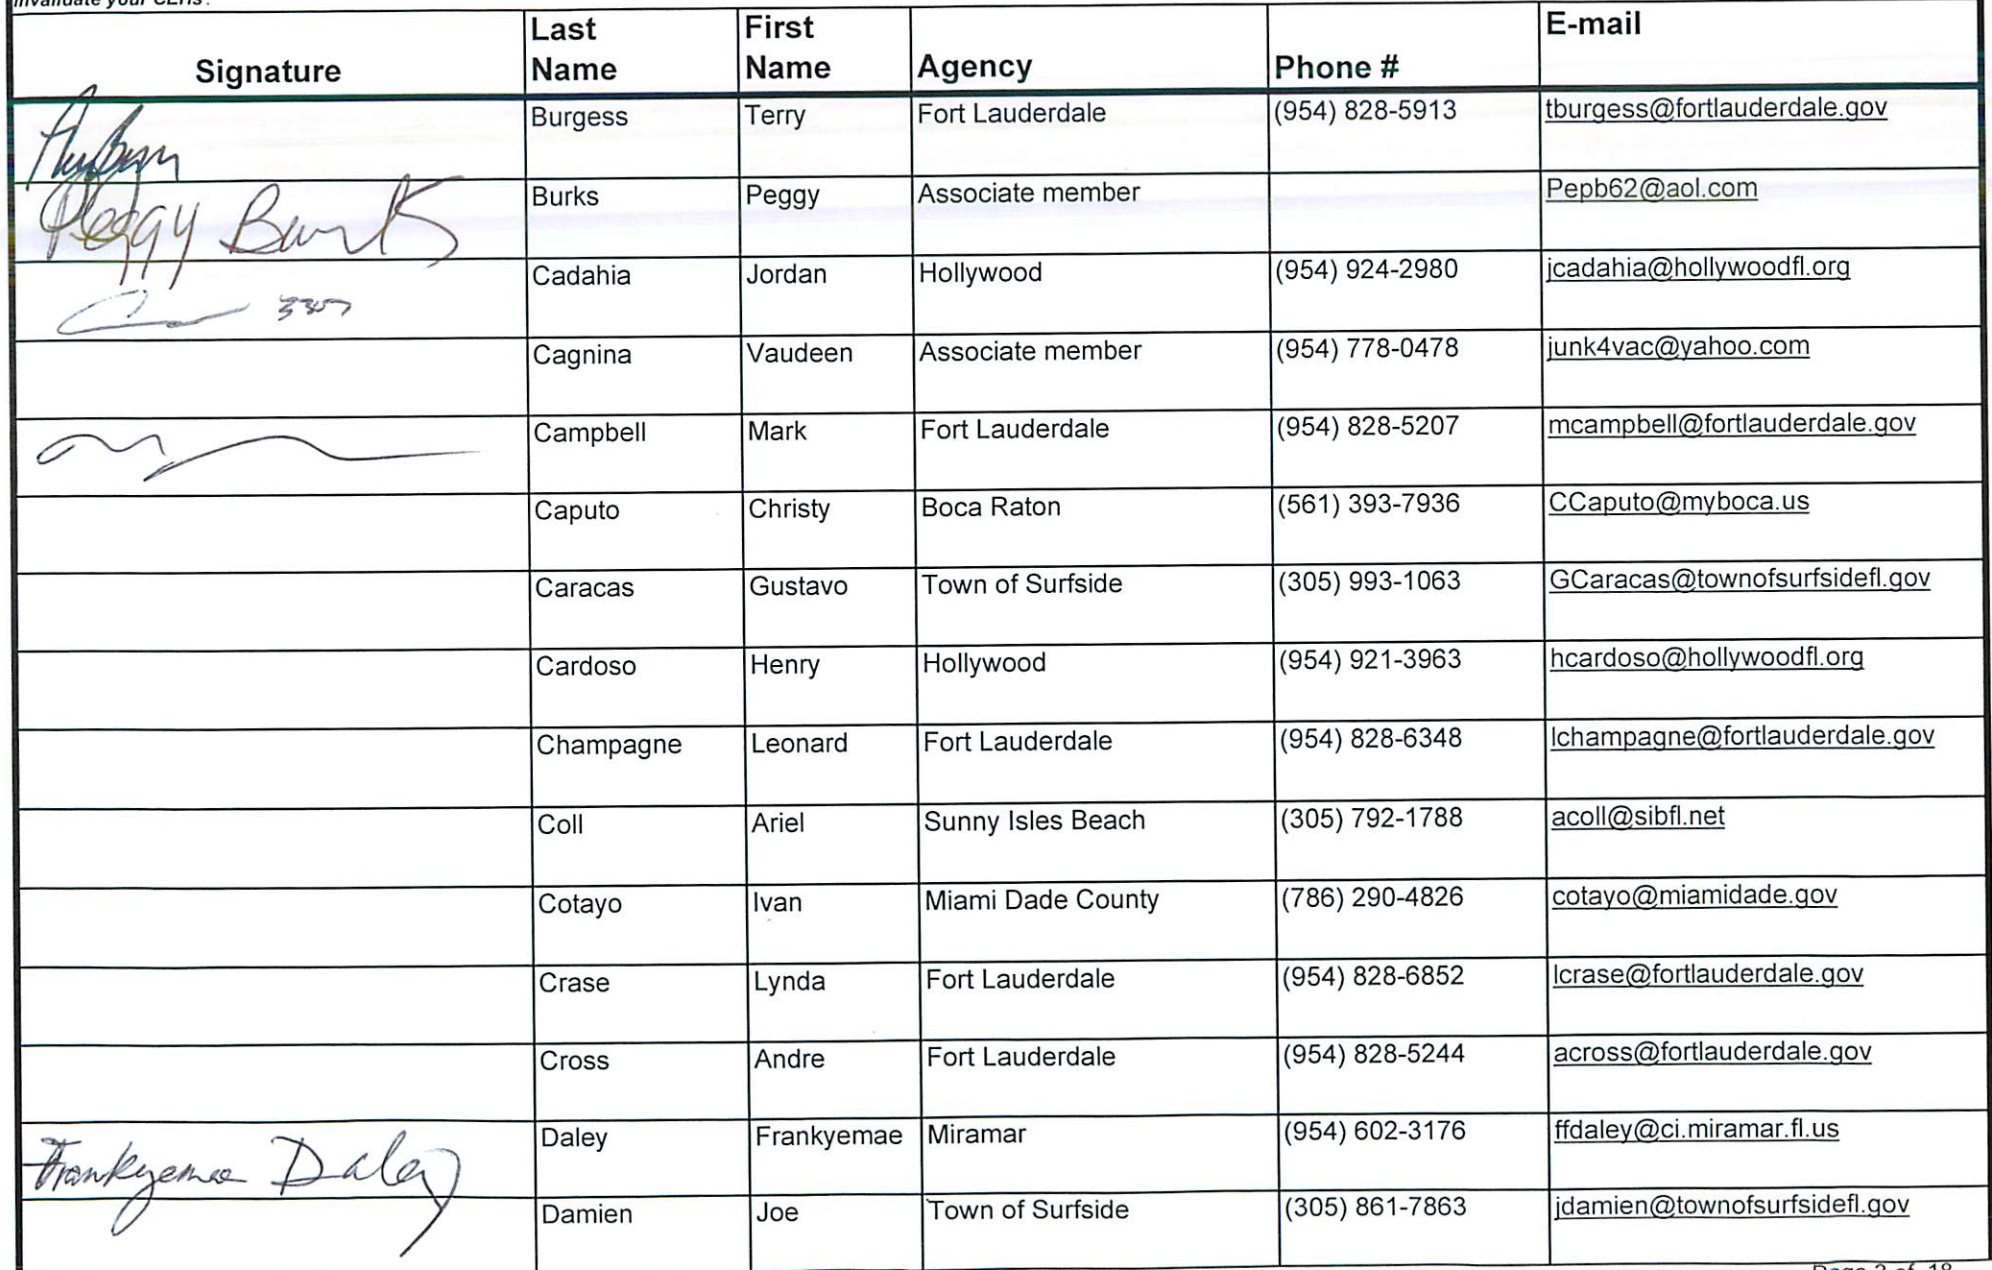 invalidate your CEHs!
Signature Last Name First Name Agency Phone # E-mail
Burgess Terry Fort Lauderdale (954) 828-5913 tburgess@fortlauderdale.gov
Peggy Burks Burks Peggy Associate member Pepb62@aol.com
Cadahia Jordan Hollywood (954) 924-2980 jcadahia@hollywoodfl.org
Cagnina Vaudeen Associate member (954) 778-0478 junk4vac@yahoo.com
Campbell Mark Fort Lauderdale (954) 828-5207 mcampbell@fortlauderdale.gov
Caputo Christy Boca Raton (561) 393-7936 CCaputo@myboca.us
Caracas Gustavo Town of Surfside (305) 993-1063 GCaracas@townofsurfsidefl.gov
Cardoso Henry Hollywood (954) 921-3963 hcardoso@hollywoodfl.org
Champagne Leonard Fort Lauderdale (954) 828-6348 lchampagne@fortlauderdale.gov
Coll Ariel Sunny Isles Beach (305) 792-1788 acoll@sibfl.net
Cotayo Ivan Miami Dade County (786) 290-4826 cotayo@miamidade.gov
Crase Lynda Fort Lauderdale (954) 828-6852 lcrase@fortlauderdale.gov
Cross Andre Fort Lauderdale (954) 828-5244 across@fortlauderdale.gov
Frankyemae Daley Daley Frankyemae Miramar (954) 602-3176 ffdaley@ci.miramar.fl.us
Damien Joe Town of Surfside (305) 861-7863 jdamien@townofsurfsidefl.gov
of 18